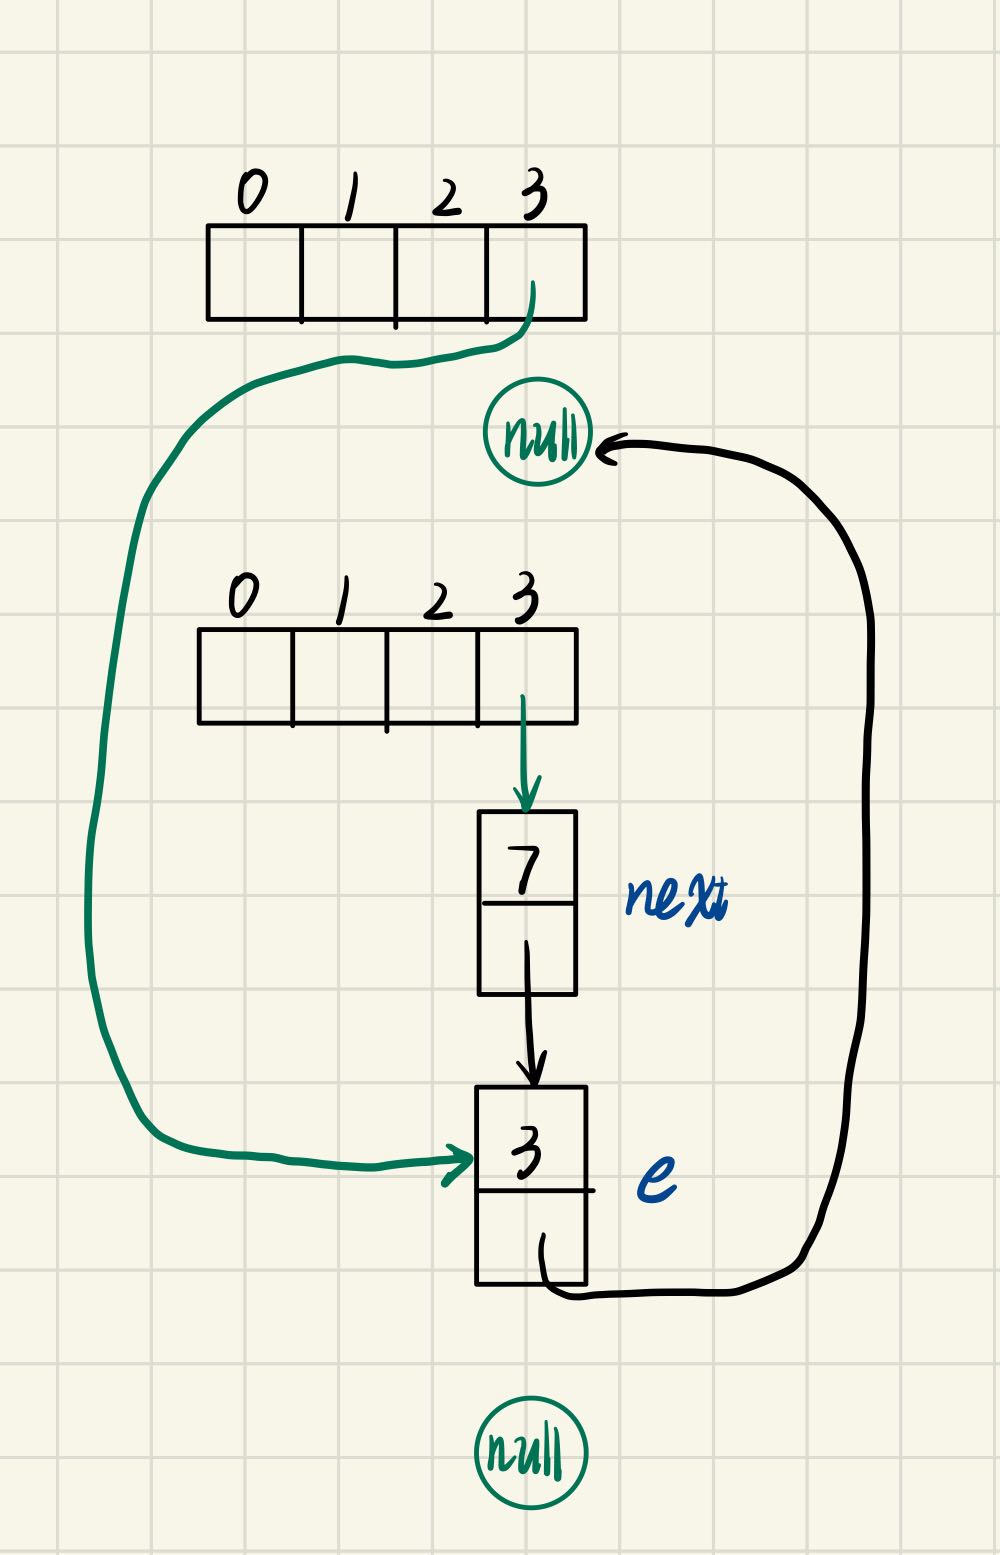 0 1 2 3
null
0 1 2 3
7
next
3
e
null